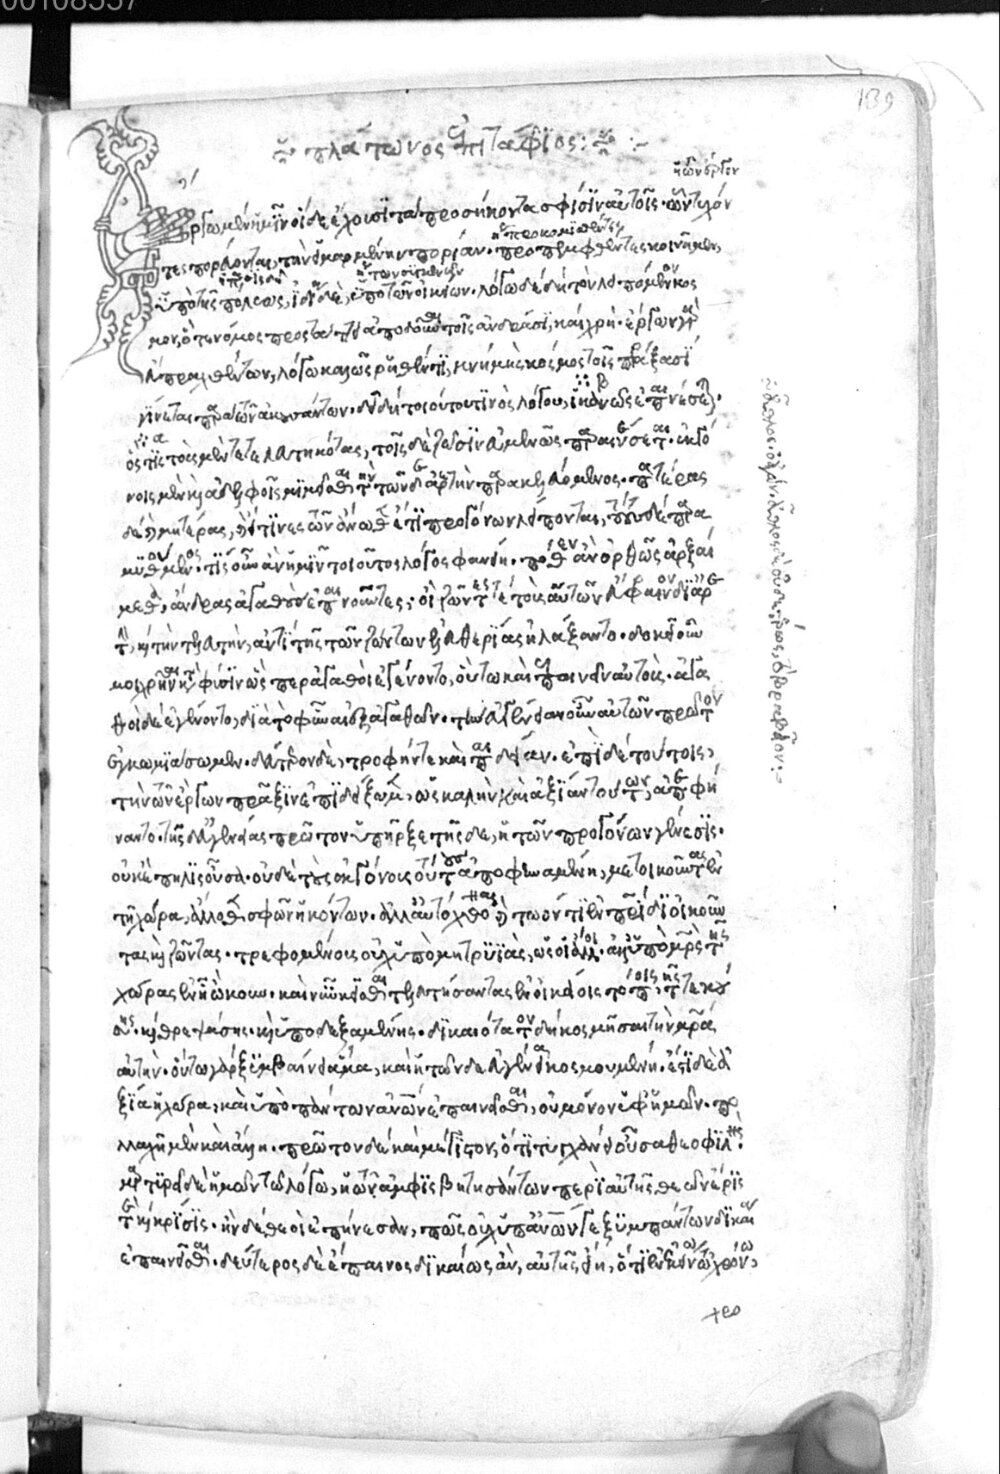 πλάτωνος ἐπιτάφιος:
139
Ἔργω μὲν ἡμῖν οἵδε ἔχουσι τὰ προσήκοντα σφίσιν αὐτοῖς· ὧν τυχόν
τες πορεύονται, τὴν εἱμαρμένην πορείαν· προπεμφθέντες κοινῆ μὲν,
ὑπὸ τῆς πόλεως, ἰδία δὲ, ὑπὸ τῶν οἰκείων. λόγω δὲ δὴ τὸν λειπόμενον κόσ
μον, ὅ τε νόμος προστάττει ἀποδοῦναι τοῖς ἀνδράσι, καὶ χρή· ἔργων γὰρ
εὖ πραχθέντων, λόγω καλῶς ῥηθέντι, μνήμη κόσμος τοῖς πράξασι
γίνεται παρὰ τῶν ἀκουσάντων. δεῖ δὴ τοιούτου τινὸς λόγου, ἱκανῶς ἐπαινέσει.
ὅστις τοὺς μὲν τετελευτηκότας, τοῖς δὲ ζῶσιν εὐμενῶς παραινέσεται. ἐκγό
νοις μὲν καὶ ἀδελφοῖς μιμεῖσθαι τὴν τῶνδε ἀρετὴν παρακελευόμενος. πατέρας
δὲ καὶ μητέρας, καὶ εἴ τινες τῶν ἄνωθεν ἔτι προγόνων λείπονται, τούτους δὲ παρα
μυθούμενον. τίς οὖν ἂν ἡμῖν τοιοῦτος λόγος φανείη. πόθεν ἂν ὀρθῶς ἀρξαί
μεθα, ἄνδρας ἀγαθοὺς ἐπαινοῦντες· οἳ ζῶντές τε τοὺς αὑτῶν εὔφραινον δι' ἀρε
τὴν, καὶ τὴν τελευτὴν, ἀντὶ τῆς τῶν ζώντων ἐλευθερίας ἠλλάξαντο. δοκεῖ οὖν
μοι χρῆναι κατὰ φύσιν ὥσπερ ἀγαθοὶ ἐγένοντο, οὕτω καὶ ἐπαινεῖν αὐτούς. ἀγα
θοὶ δὲ ἐγένοντο, διὰ τὸ φῦναι ἐξ ἀγαθῶν. τὴν εὐγένειαν οὖν αὐτῶν πρῶτον
ἐγκωμιάσωμεν. δεύτερον δὲ, τροφήν τε καὶ παιδείαν. ἐπὶ δὲ τούτοις,
τὴν τῶν ἔργων πρᾶξιν ἐπιδείξωμεν, ὡς καλὴν καὶ ἀξίαν τούτων, ἀπεφή
ναντο. τῆς δ' εὐγενείας πρῶτον ὑπῆρξε τῆσδε, ἡ τῶν προγόνων γένεσις.
οὐκ ἔπηλις οὖσα. οὐδὲ τοὺς ἐκγόνους τούτους ἀποφηναμένη, μετοικοῦντας ἐν
τῆ χώρα, ἄλλοθεν σφῶν ἡκόντων. ἀλλ' αὐτόχθονας καὶ τῶ ὄντι ἐν πατρίδι οἰκοῦν
τας καὶ ζῶντας. τρεφομένους οὐχ ὑπὸ μητρυιᾶς, ὡς οἱ ἄλλοι. ἀλλ' ὑπὸ μητρὸς τῆς
χώρας ἐν ἧ ὤκουν. καὶ νῦν κεῖσθαι τελευτήσαντας ἐν οἰκείοις τόποις, τῆς τεκού
σης. καὶ θρεψάσης. καὶ ὑποδεξαμένης. δικαιότατον δὴ κοσμῆσαι τὴν μητέρα
αὐτήν. οὕτω γὰρ ξυμβαίνει ἅμα, καὶ ἡ τῶνδε εὐγένεια κοσμουμένη. ἔστι δὲ ἀ
ξία ἡ χώρα, καὶ ὑπὸ πάντων ἀνθρώπων ἐπαινεῖσθαι, οὐ μόνον ὑφ' ἡμῶν. πο
λλαχῆ μὲν καὶ ἄλλη. πρῶτον δὲ καὶ μέγιστον, ὅτι τυγχάνει οὖσα θεοφιλής.
μαρτυρεῖ δὲ ἡμῶν τῶ λόγω, ἡ τῶν ἀμφισβητησάντων περὶ αὐτῆς θεῶν ἔρις
τε καὶ κρίσις. ἣν δὲ θεοὶ ἐπήνεσαν, πῶς οὐχ ὑπ' ἀνθρώπων γε ξυμπάντων δικαία
ἐπαινεῖσθαι. δεύτερος δὲ ἔπαινος δικαίως ἂν, αὐτῆς εἴη, ὅτι ἐν ἐκείνω τῶ χρόνω,